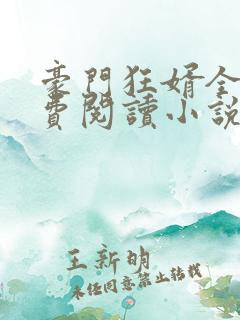 豪門狂婿全
費閱讀小說
王新明
未經同意禁止轉載